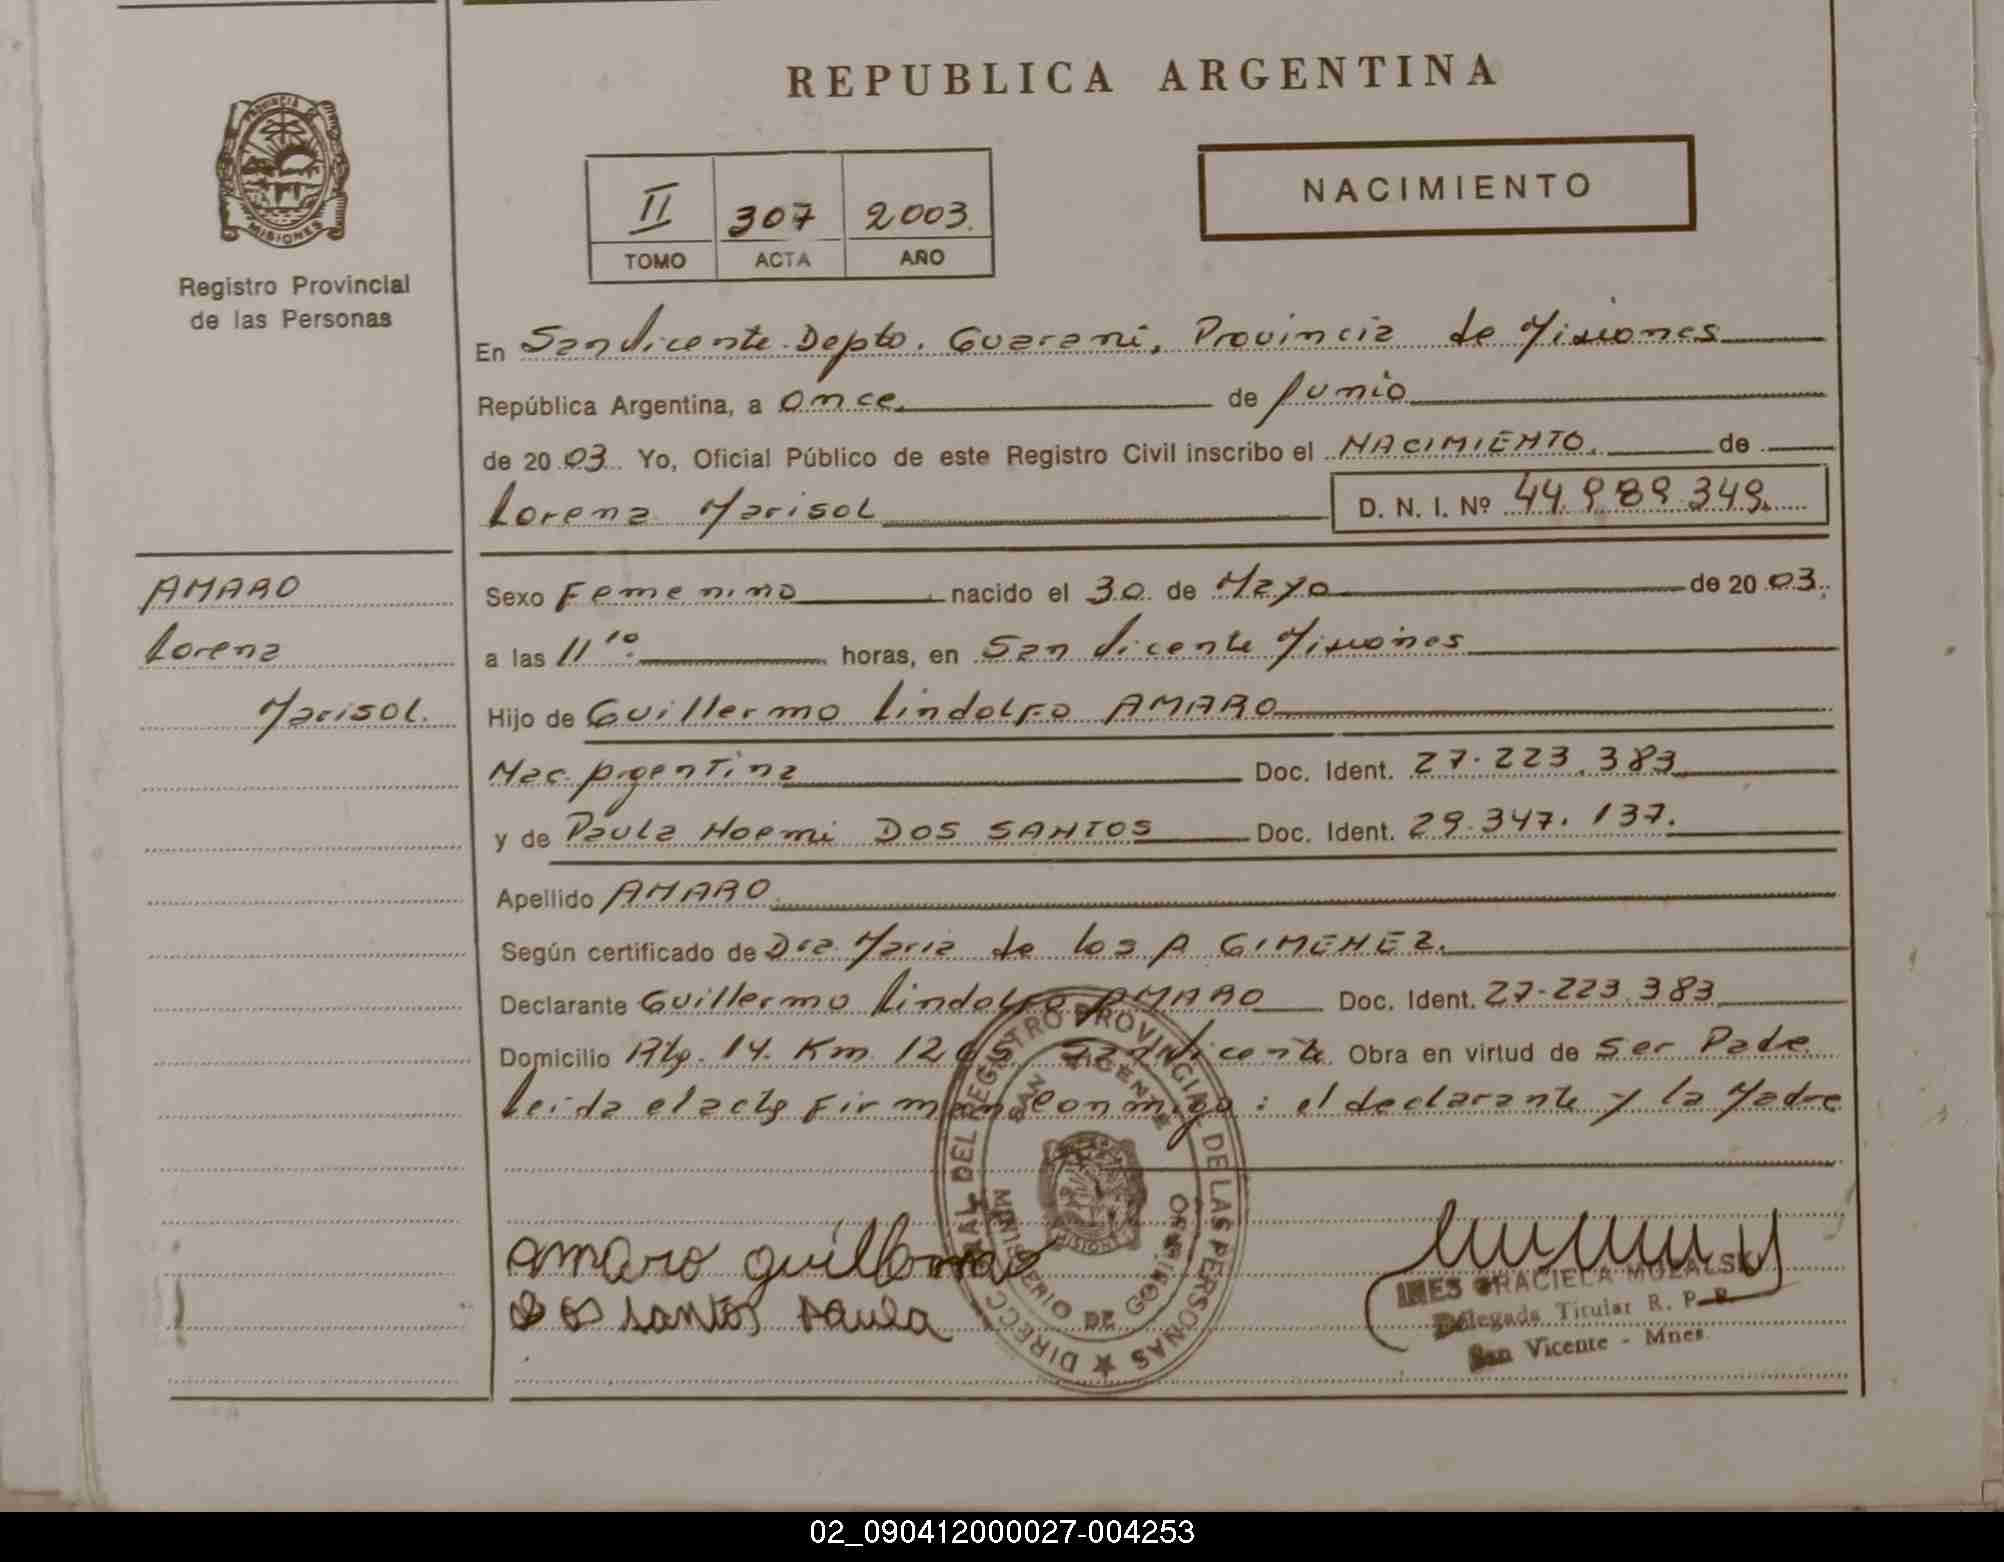 REPUBLICA ARGENTINA
PROVINCIA DE MISIONES
Registro Provincial
de las Personas
II 307 2003.
TOMO ACTA AÑO
NACIMIENTO
En San Vicente. Depto. Guarani, Provincia de Misiones
República Argentina, a once de Junio
de 2003 Yo, Oficial Público de este Registro Civil inscribo el NACIMIENTO. de
Lorena Marisol D. N. I. Nº 44.989.349.
AMARO
Lorena
Marisol.
Sexo Femenino nacido el 30 de Mayo de 2003.
a las 11 10. horas, en San Vicente Misiones
Hijo de Guillermo Lindolfo AMARO
Nac. Argentina Doc. Ident. 27.223.383
y de Paula Noemi DOS SANTOS Doc. Ident. 29.347.137.
Apellido AMARO
Según certificado de Dra. Maria de los A GIMENEZ.
Declarante Guillermo Lindolfo AMARO Doc. Ident. 27.223.383
Domicilio Rta. 14. Km. 1265 San Vicente. Obra en virtud de ser Padre
Leida el acta firman conmigo: el declarante y la Madre
amaro guillermo
dos santos Paula
DIRECC. GRAL DEL REGISTRO PROVINCIAL DE LAS PERSONAS
SAN VICENTE
MINISTERIO DE GOBIERNO
MISIONES
INES GRACIELA
Delegada Titular R. P. P.
San Vicente - Mnes.
02_090412000027-004253